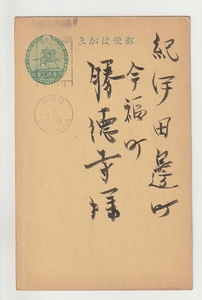 郵便はがき
紀伊田邊町
今福町
勝德寺様